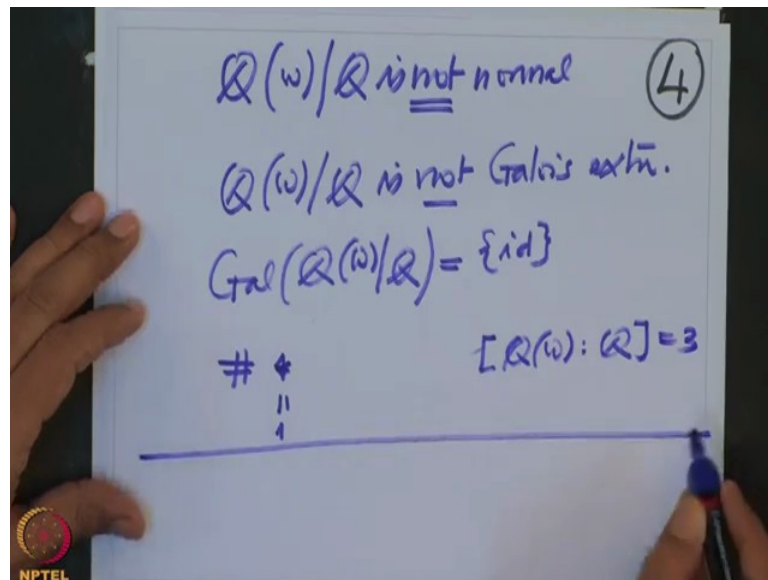 Q(ω)/Q is not normal
4
Q(ω)/Q is not Galois extn.
Gal(Q(ω)/Q) = {id}
# [Q(ω):Q] = 3
"
1
NPTEL